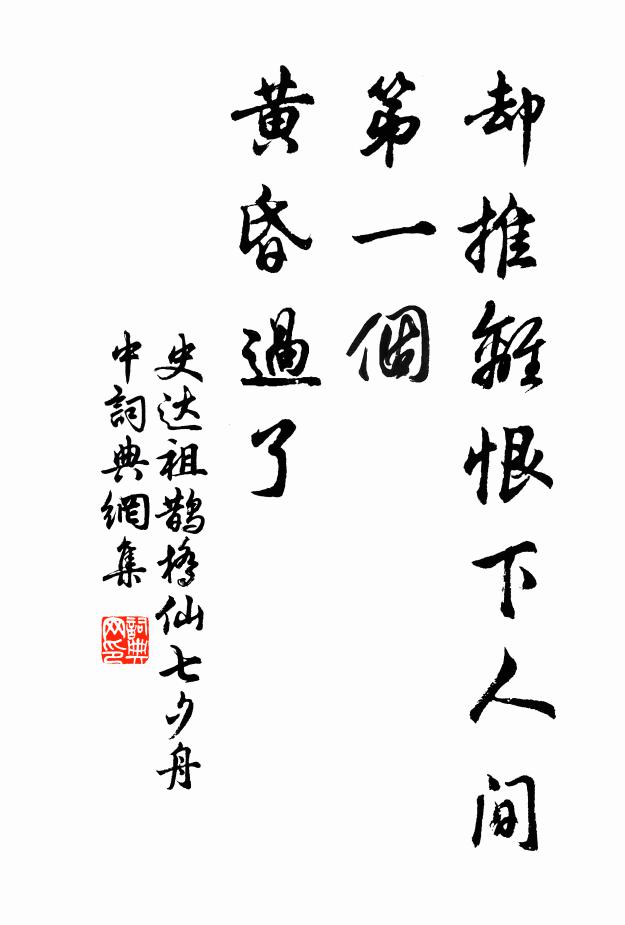 却推離恨下人间
第一個
黄昏過了
史达祖鹊橋仙七夕舟
中詞典網集
詞典
网印